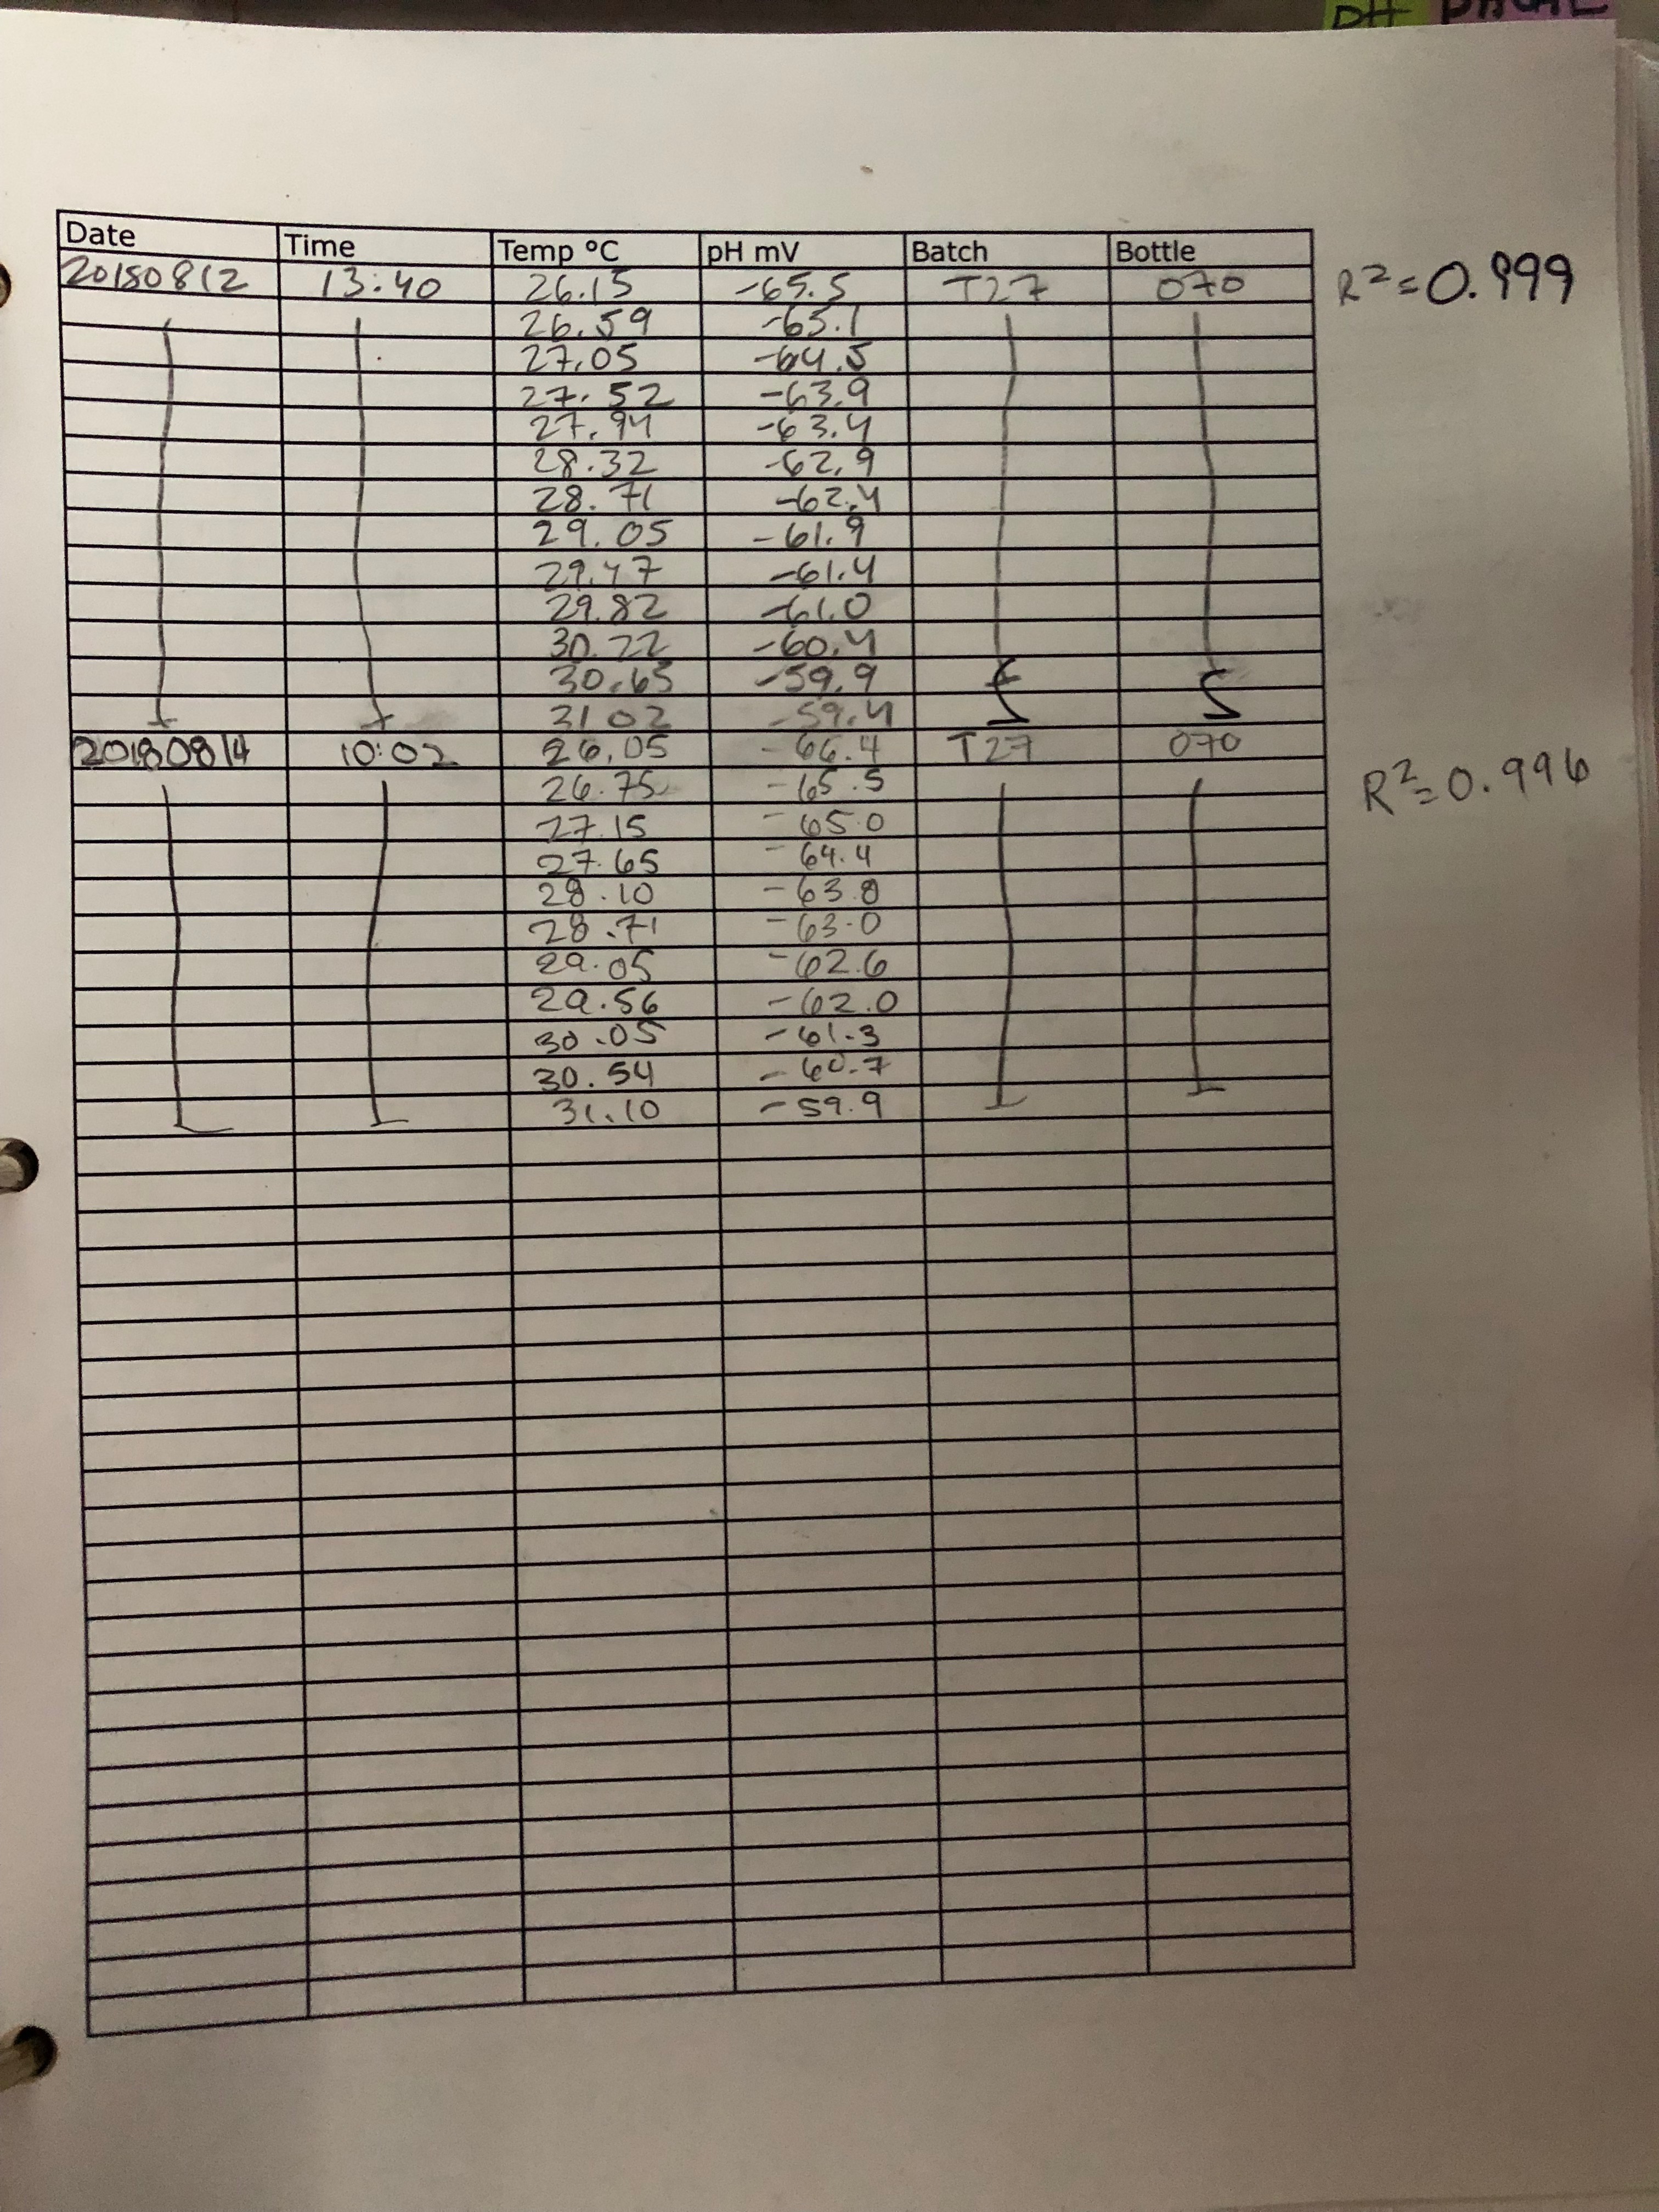 Date Time Temp ºC pH mV Batch Bottle
20180812 13:40 26.15 -65.5 T27 070 R²=0.999
26.59 -65.1
27.05 -64.5
27.52 -63.9
27.94 -63.4
28.32 -62.9
28.71 -62.4
29.05 -61.9
29.47 -61.4
29.82 -61.0
30.22 -60.4
30.65 -59.9
31 02 -59.4
20180814 10:02 26.05 -66.4 T27 070
26.75 -65.5 R²=0.996
27.15 -65.0
27.65 -64.4
28.10 -63.8
28.71 -63.0
29.05 -62.6
29.56 -62.0
30.05 -61.3
30.54 -60.7
31.10 -59.9